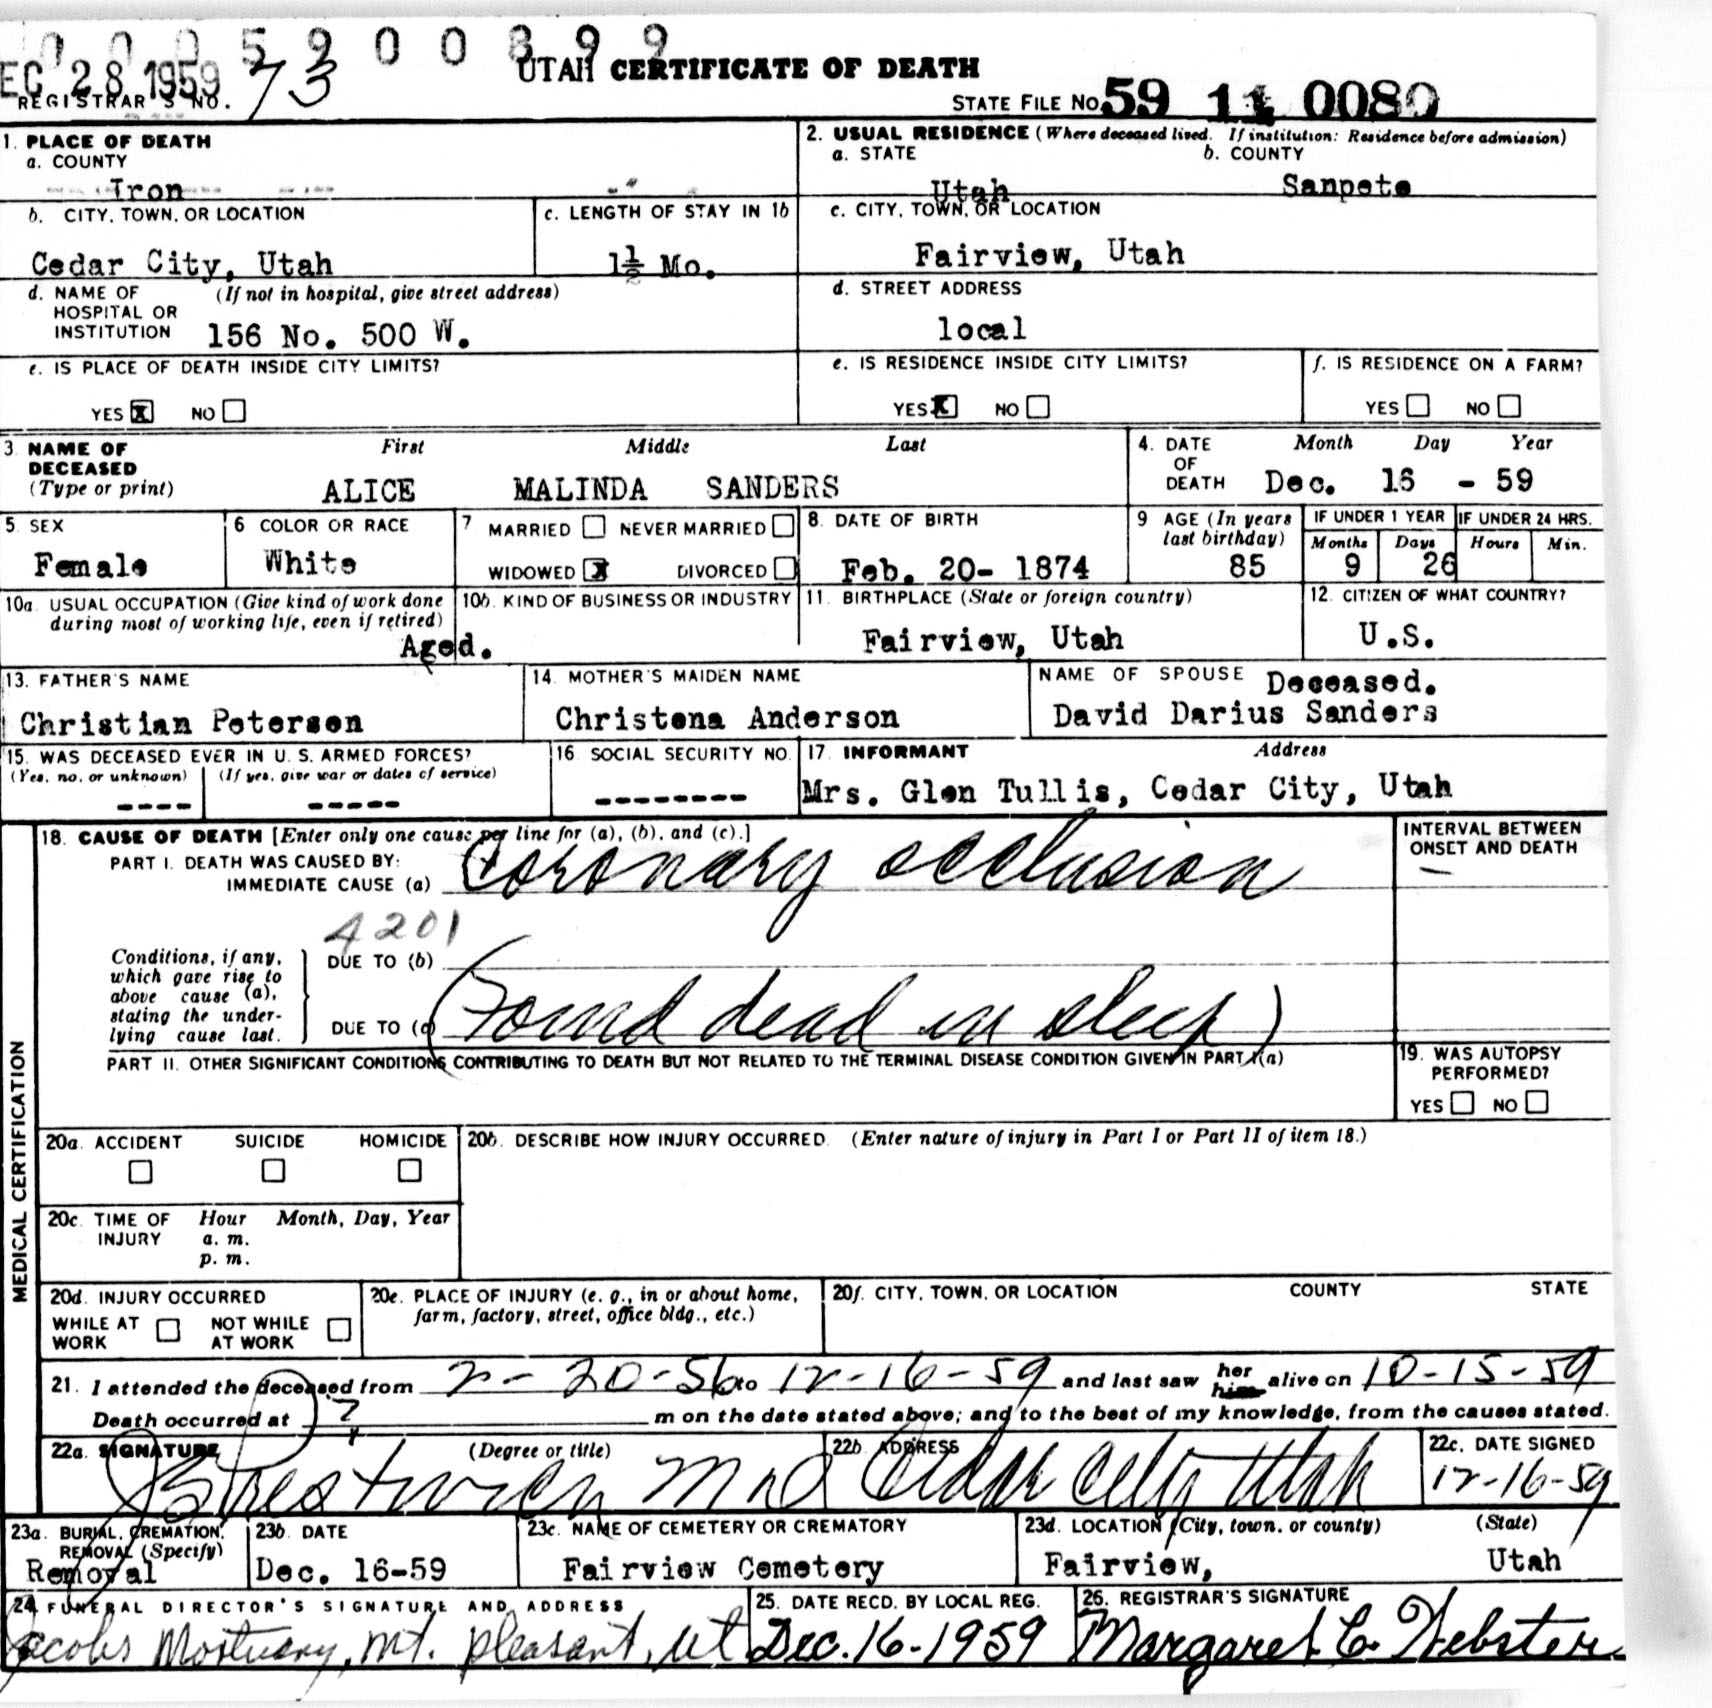 0 0 0 5 9 0 0 8 9 9
EC 28 1959
UTAH CERTIFICATE OF DEATH
REGISTRAR'S NO. 73
STATE FILE NO. 59 11 0080
1. PLACE OF DEATH
a. COUNTY
Iron
2. USUAL RESIDENCE (Where deceased lived. If institution: Residence before admission)
a. STATE
b. COUNTY
Utah
Sanpete
b. CITY, TOWN, OR LOCATION
Cedar City, Utah
c. LENGTH OF STAY IN 1b
1½ Mo.
c. CITY, TOWN, OR LOCATION
Fairview, Utah
d. NAME OF (If not in hospital, give street address)
HOSPITAL OR
INSTITUTION 156 No. 500 W.
d. STREET ADDRESS
local
e. IS PLACE OF DEATH INSIDE CITY LIMITS?
YES X NO
e. IS RESIDENCE INSIDE CITY LIMITS?
YES X NO
f. IS RESIDENCE ON A FARM?
YES NO
3. NAME OF DECEASED
(Type or print)
First Middle Last
ALICE MALINDA SANDERS
4. DATE OF DEATH
Month Day Year
Dec. 16 - 59
5. SEX
Female
6 COLOR OR RACE
White
7 MARRIED NEVER MARRIED
WIDOWED X DIVORCED
8. DATE OF BIRTH
Feb. 20- 1874
9 AGE (In years
last birthday)
85
IF UNDER 1 YEAR
Months Days
9 26
IF UNDER 24 HRS.
Hours Min.
10a. USUAL OCCUPATION (Give kind of work done
during most of working life, even if retired)
Aged.
10b. KIND OF BUSINESS OR INDUSTRY
11. BIRTHPLACE (State or foreign country)
Fairview, Utah
12. CITIZEN OF WHAT COUNTRY?
U.S.
13. FATHER'S NAME
Christian Peterson
14. MOTHER'S MAIDEN NAME
Christena Anderson
NAME OF SPOUSE Deceased.
David Darius Sanders
15. WAS DECEASED EVER IN U. S. ARMED FORCES?
(Yes, no, or unknown) (If yes, give war or dates of service)
---- -----
16. SOCIAL SECURITY NO.
--------
17. INFORMANT Address
Mrs. Glen Tullis, Cedar City, Utah
MEDICAL CERTIFICATION
18. CAUSE OF DEATH [Enter only one cause per line for (a), (b), and (c).]
PART I. DEATH WAS CAUSED BY:
IMMEDIATE CAUSE (a) Coronary occlusion
INTERVAL BETWEEN
ONSET AND DEATH
—
4201
Conditions, if any,
which gave rise to
above cause (a),
stating the under-
lying cause last.
DUE TO (b)
DUE TO (c) (Found dead in sleep)
PART II. OTHER SIGNIFICANT CONDITIONS CONTRIBUTING TO DEATH BUT NOT RELATED TO THE TERMINAL DISEASE CONDITION GIVEN IN PART I(a)
19. WAS AUTOPSY
PERFORMED?
YES NO
20a. ACCIDENT SUICIDE HOMICIDE
20b. DESCRIBE HOW INJURY OCCURRED. (Enter nature of injury in Part I or Part II of item 18.)
20c. TIME OF INJURY
Hour Month, Day, Year
a. m.
p. m.
20d. INJURY OCCURRED
WHILE AT WORK NOT WHILE AT WORK
20e. PLACE OF INJURY (e. g., in or about home,
farm, factory, street, office bldg., etc.)
20f. CITY, TOWN, OR LOCATION COUNTY STATE
21. I attended the deceased from 2-20-56 to 12-16-59 and last saw her him alive on 10-15-59
Death occurred at ? m on the date stated above; and to the best of my knowledge, from the causes stated.
22a. SIGNATURE (Degree or title)
Prestwich MD
22b. ADDRESS
Cedar City Utah
22c. DATE SIGNED
12-16-59
23a. BURIAL, CREMATION,
REMOVAL (Specify)
Removal
23b. DATE
Dec. 16-59
23c. NAME OF CEMETERY OR CREMATORY
Fairview Cemetery
23d. LOCATION (City, town, or county) (State)
Fairview, Utah
24. FUNERAL DIRECTOR'S SIGNATURE AND ADDRESS
Jacobs Mortuary, Mt. Pleasant, Ut
25. DATE RECD. BY LOCAL REG.
Dec. 16-1959
26. REGISTRAR'S SIGNATURE
Margaret C. Webster